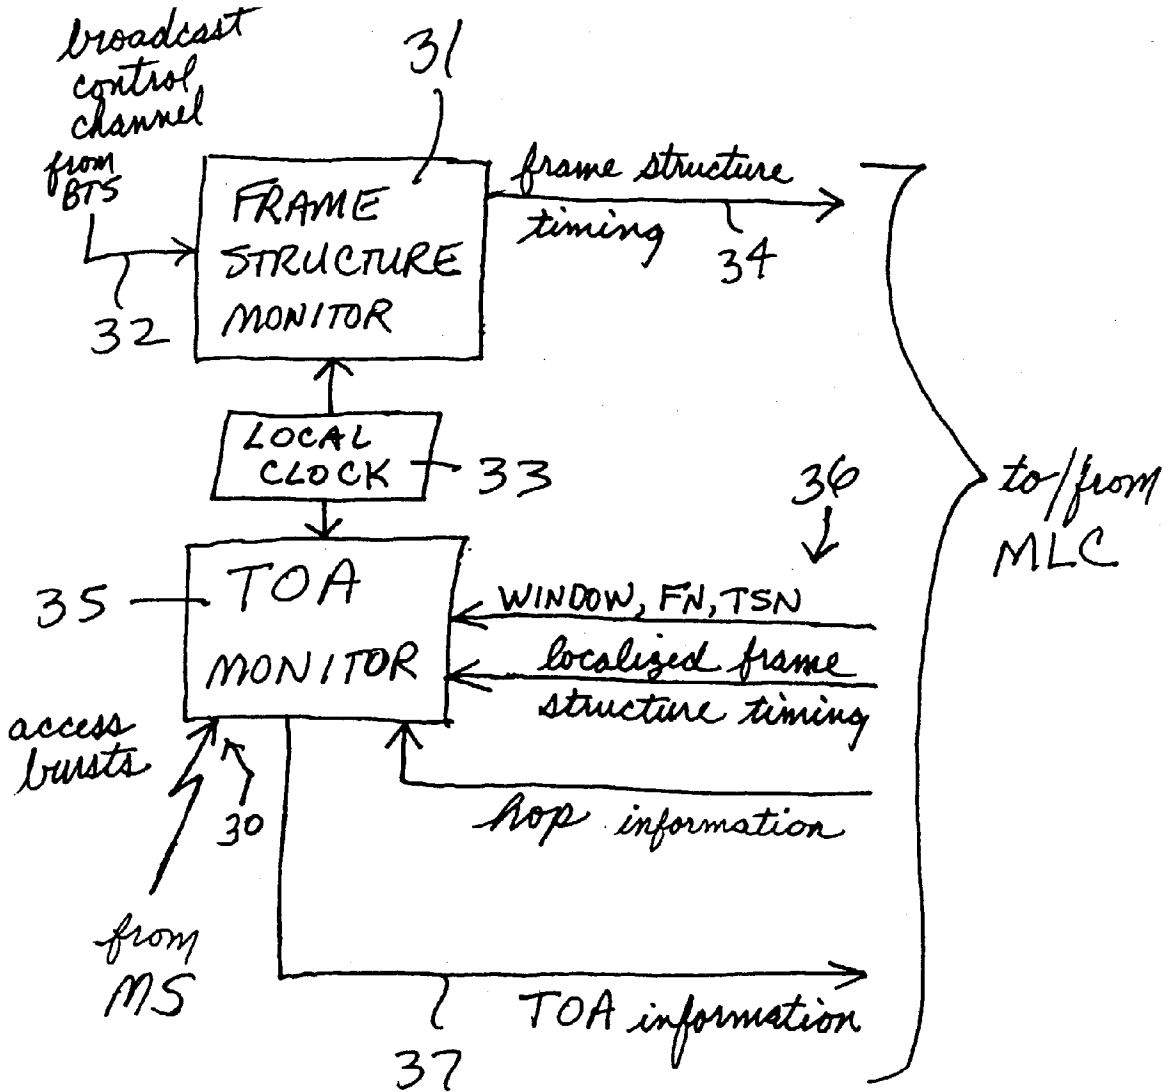 broadcast
control
channel
from
BTS
31
FRAME
STRUCTURE
MONITOR
32
frame structure
timing
34
LOCAL
CLOCK
33
36
to/from
MLC
35
TOA
MONITOR
WINDOW, FN, TSN
localized frame
structure timing
access
bursts
30
hop information
from
MS
TOA information
37